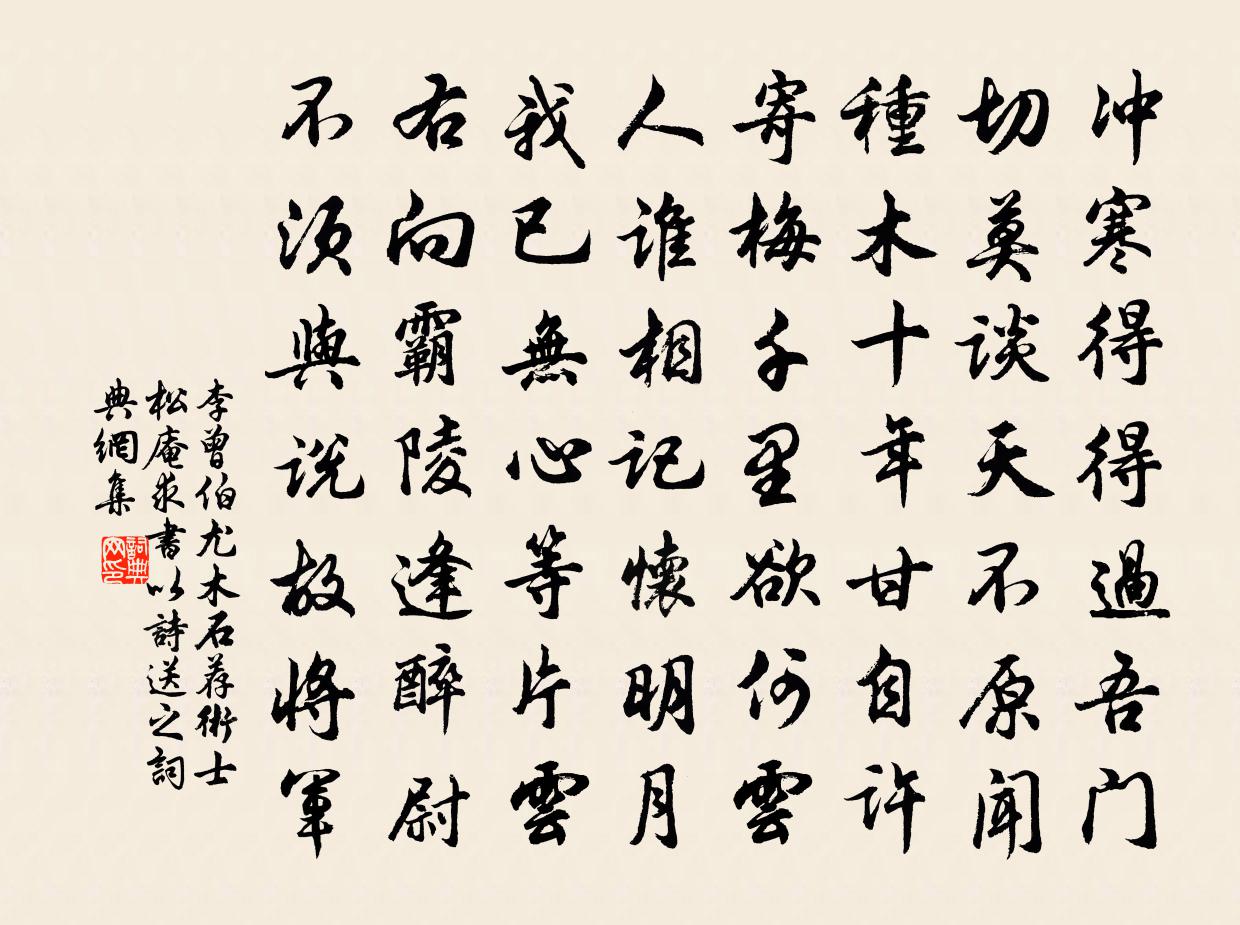 冲寒得得過吾门
切莫談天不原闻
種木十年甘自許
寄梅千里欲何雲
人誰相記懷明月
我已無心等片雲
右向霸陵逢醉尉
不須與説故將軍
李曾伯尤木石荐術士
松庵求書以詩送之詞
典網集
詞典網印